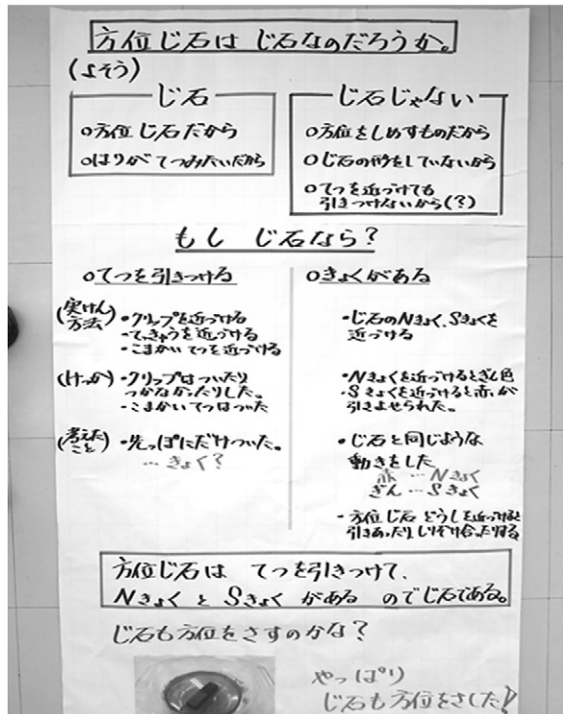 方位じ石は じ石なのだろうか。
(よそう)
じ石
○方位じ石だから
○はりが てつみたいだから
じ石じゃない
○方位をしめすものだから
○じ石の形をしていないから
○てつを近づけても
引きつけないから(?)
もし じ石なら?
○てつを引きつける
(実けん方法)
・クリップを近づける
・てっきゅうを近づける
・こまかいてつを近づける
(けっか)
・クリップはついたり
つかなかったりした。
・こまかいてつはついた
(考えたこと)
・先っぽにだけついた。
… きょく?
○きょくがある
・じ石のNきょく、Sきょくを
近づける
・Nきょくを近づけるとぎん色
・Sきょくを近づけると赤、が
引きよせられた。
・じ石と同じような
動きをした
赤 … Nきょく
ぎん … Sきょく
・方位じ石どうしを近づけると
引きあったり、しりぞけ合ったりする
方位じ石は てつを引きつけて、
Nきょく と Sきょく がある のでじ石である。
じ石も方位をさすのかな?
やっぱり
じ石も方位をさした!